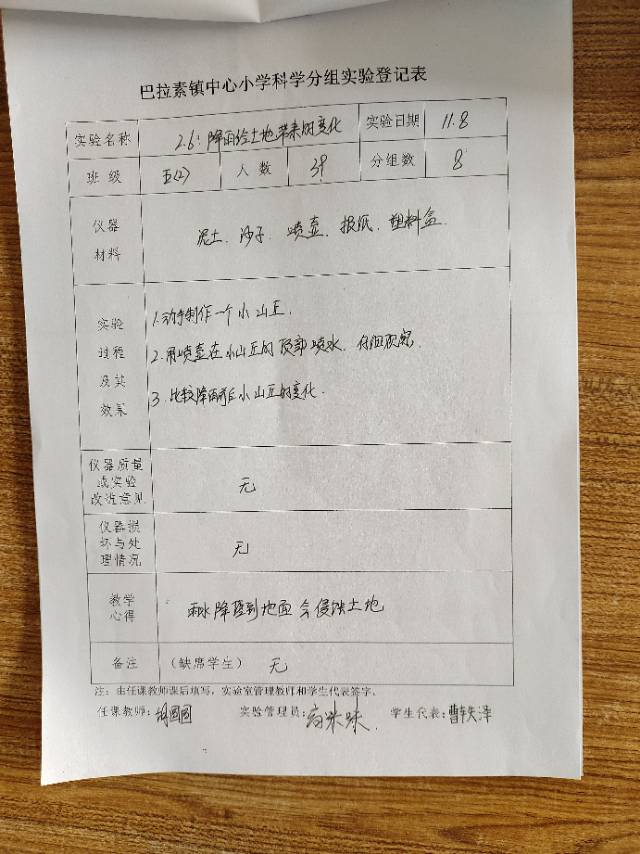 巴拉素镇中心小学科学分组实验登记表
实验名称 2.6：降雨给土地带来的变化 实验日期 11.8
班级 五(2) 人数 39 分组数 8
仪器
材料
泥土、沙子、喷壶、报纸、塑料盒
实验
过程
及其
效果
1.动手制作一个小山丘.
2.用喷壶在小山丘的顶部喷水，仔细观察.
3.比较降雨前后小山丘的变化.
仪器质量
或实验
改进意见
无
仪器损
坏与处
理情况
无
教学
心得
雨水降落到地面会侵蚀土地
备注 （缺席学生） 无
注：由任课教师课后填写，实验室管理教师和学生代表签字。
任课教师：胡圆圆 实验管理员： 学生代表：曹轶泽